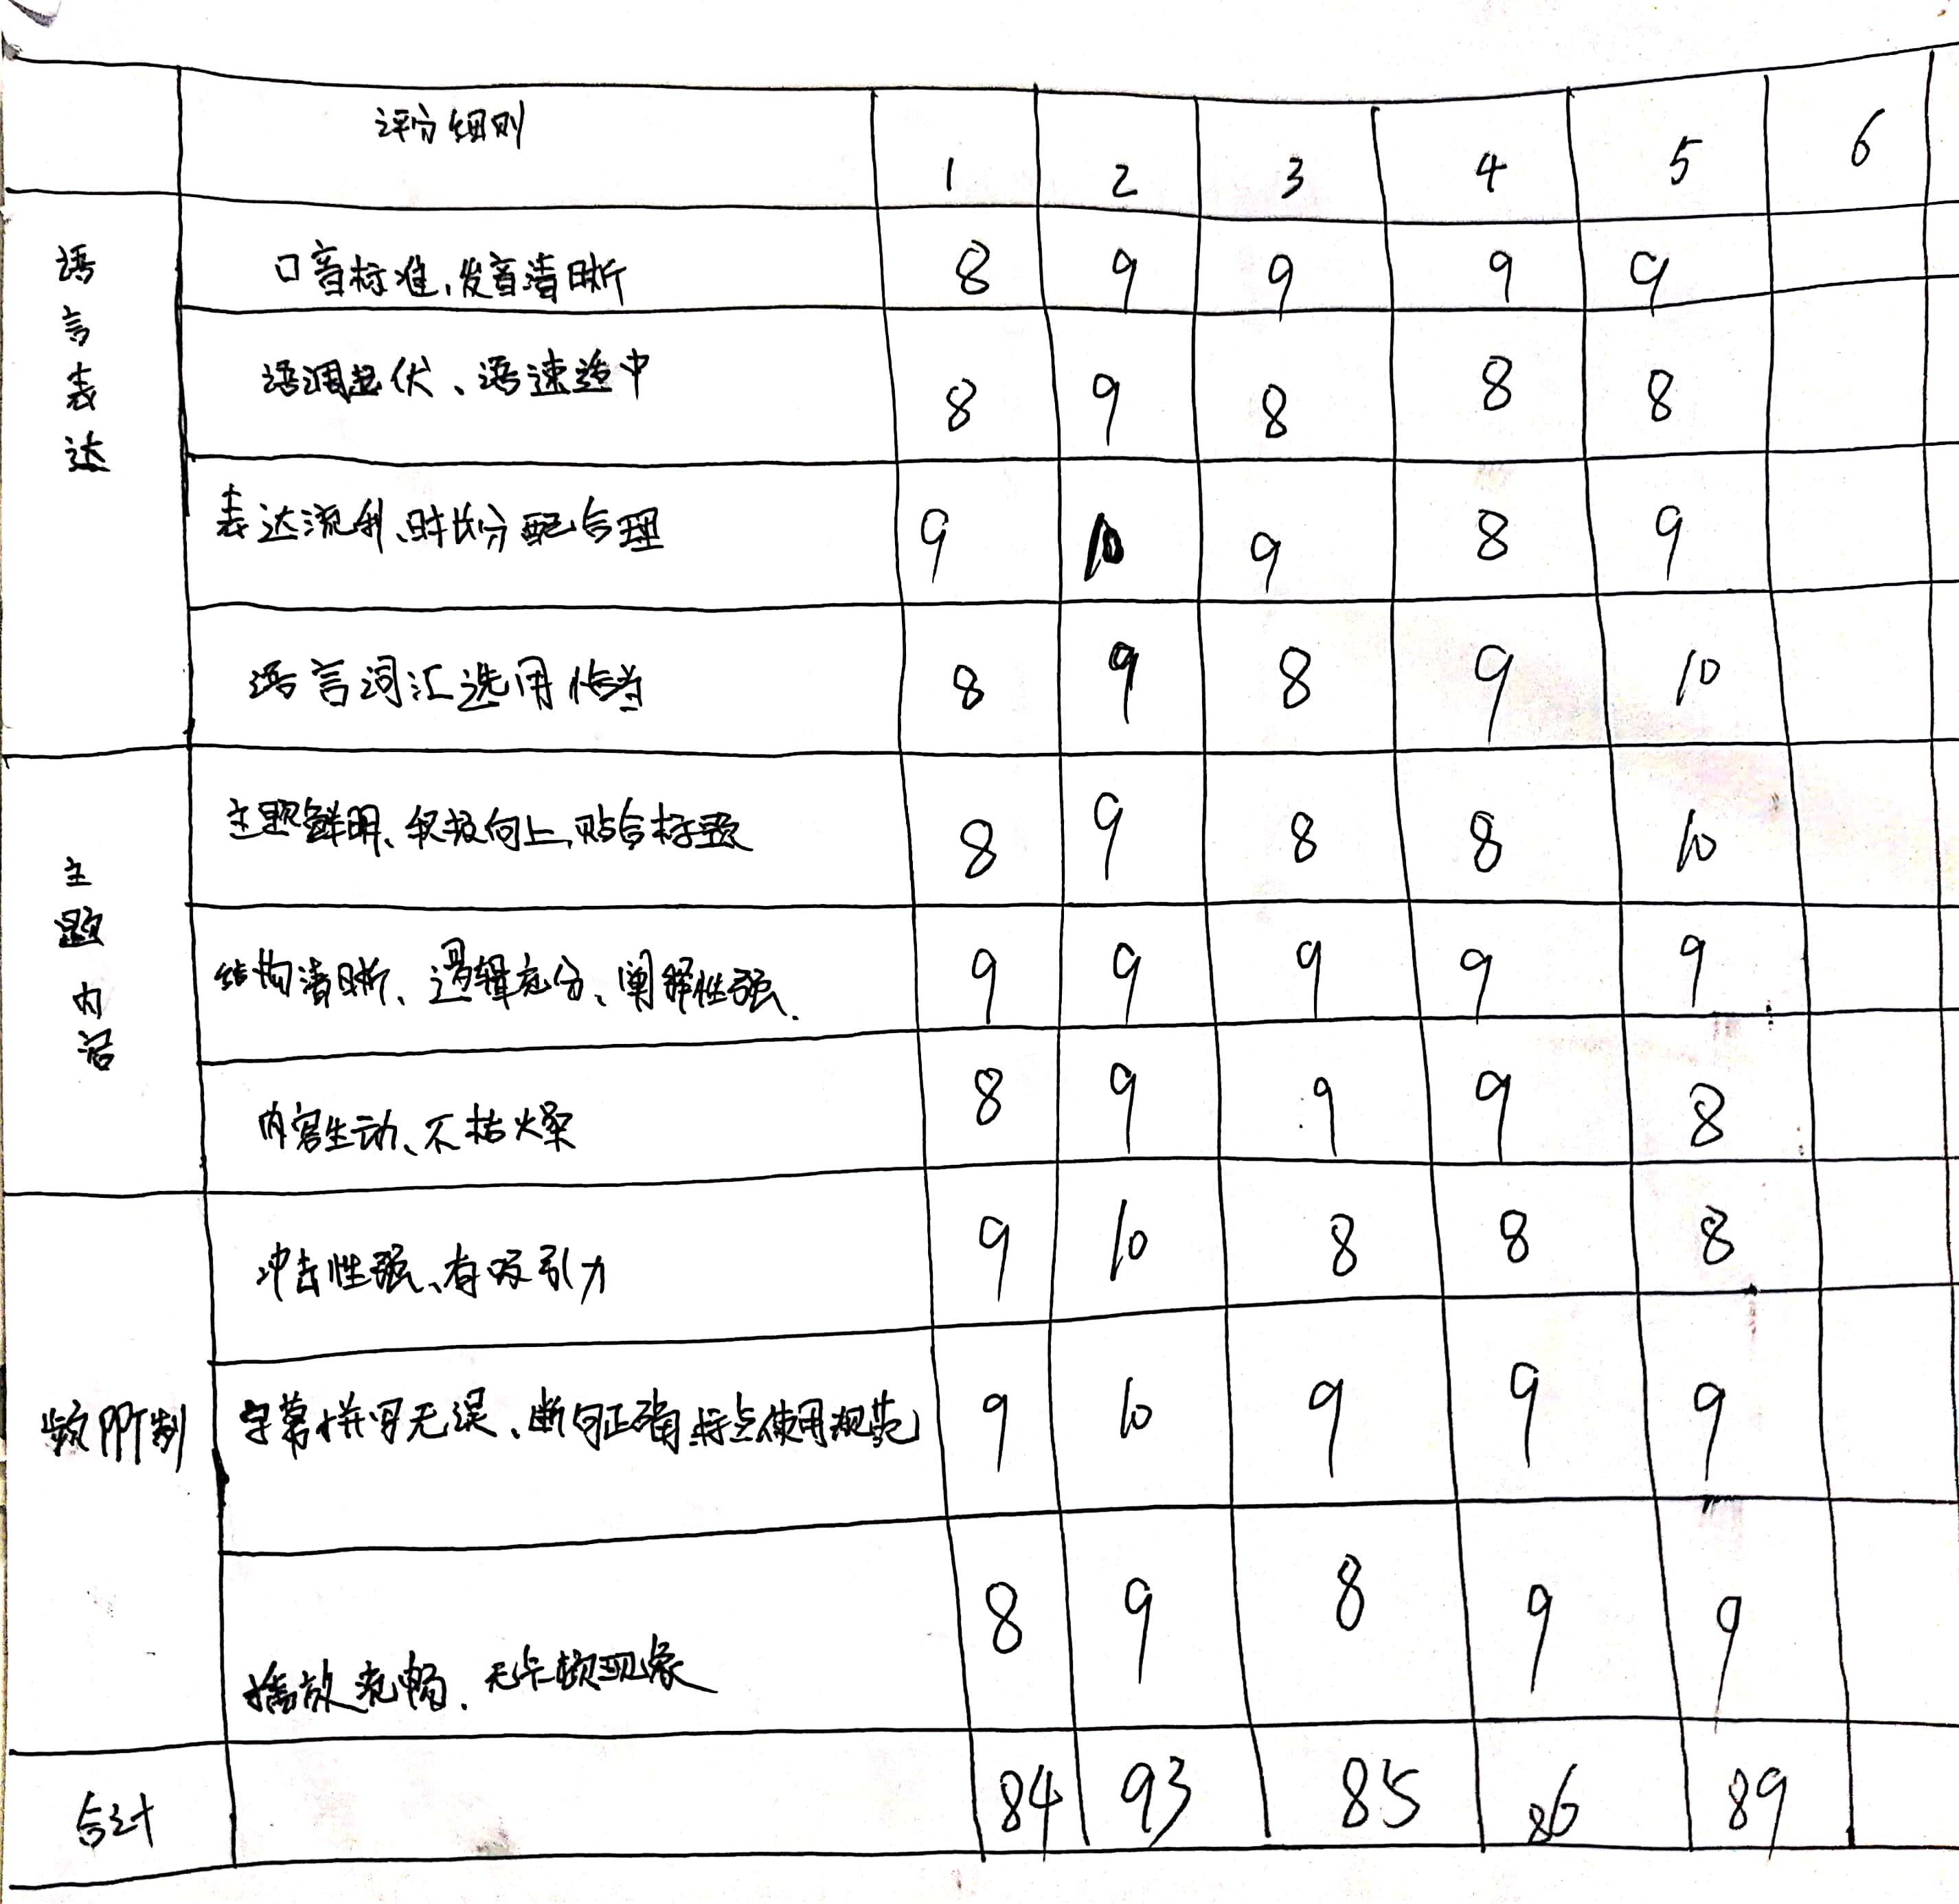 评分细则 1 2 3 4 5 6
语言表达
口音标准、发音清晰 8 9 9 9 9
语调起伏、语速适中 8 9 8 8 8
表达流利、时长分配合理 9 10 9 8 9
语言词汇选用恰当 8 9 8 9 10
主题内容
主题鲜明、积极向上、贴合标题 8 9 8 8 10
结构清晰、逻辑充分、阐释性强. 9 9 9 9 9
内容生动、不枯燥 8 9 9 9 8
冲击性强、有吸引力 9 10 8 8 8
频PPT制
字幕拼写无误、断句正确 标点使用规范 9 10 9 9 9
播放流畅、无卡顿现象 8 9 8 9 9
合计 84 93 85 86 89